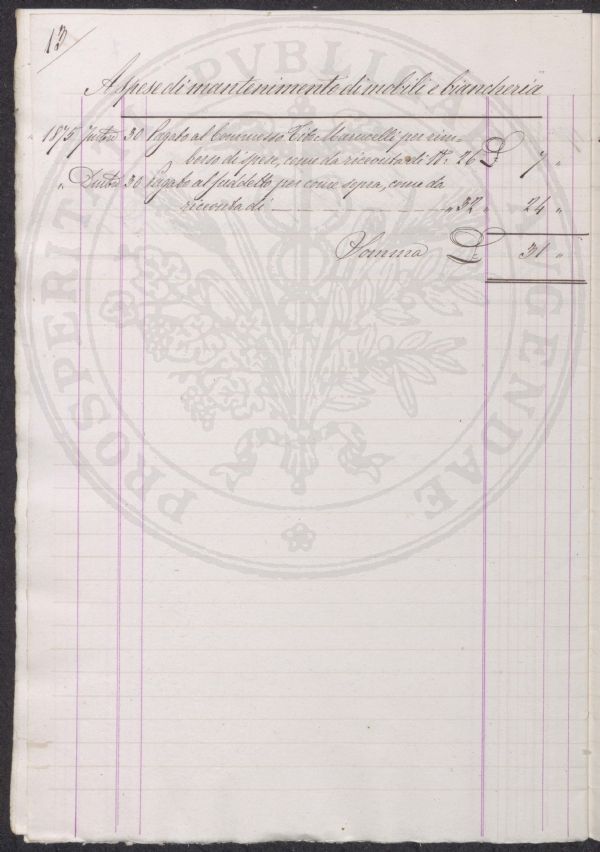 13
A spese di mantenimento di mobili e biancheria
1875 30 Pagato al Commesso Marucelli per rim-
borso di spese, come da ricevuta di N: 26 L 7 "
" 30 Pagato al suddetto per come sopra, come da
ricevuta di " 32 " 24 "
Somma L 31 "
PROSPERITATI PVBLICAE AVGENDAE